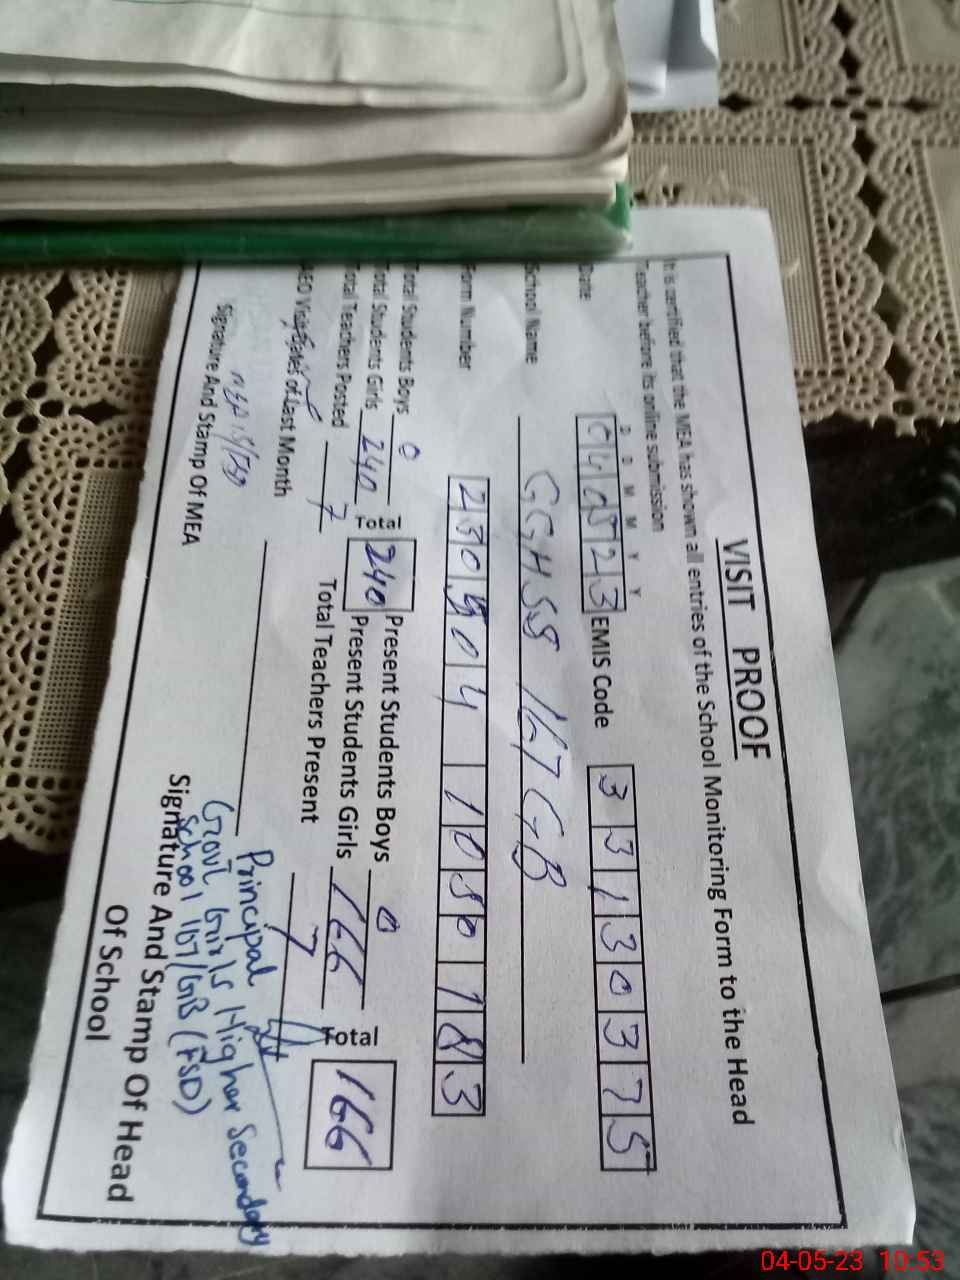 VISIT PROOF
It is certified that the MEA has shown all entries of the School Monitoring Form to the Head
Teacher before its online submission
D D M M Y Y
Date 040523 EMIS Code 33130375
School Name GGHSS 167 GB
Form Number
Total Students Boys 0 Present Students Boys 0
Total Students Girls 240 Total 240 Present Students Girls 166 Total 166
Total Teachers Posted 7 Total Teachers Present 7
AEO Visit Dates of Last Month
Signature And Stamp Of MEA
Principal
Govt Girls Higher Secondary
School 167/GB (FSD)
Signature And Stamp Of Head
Of School
04-05-23 10:53